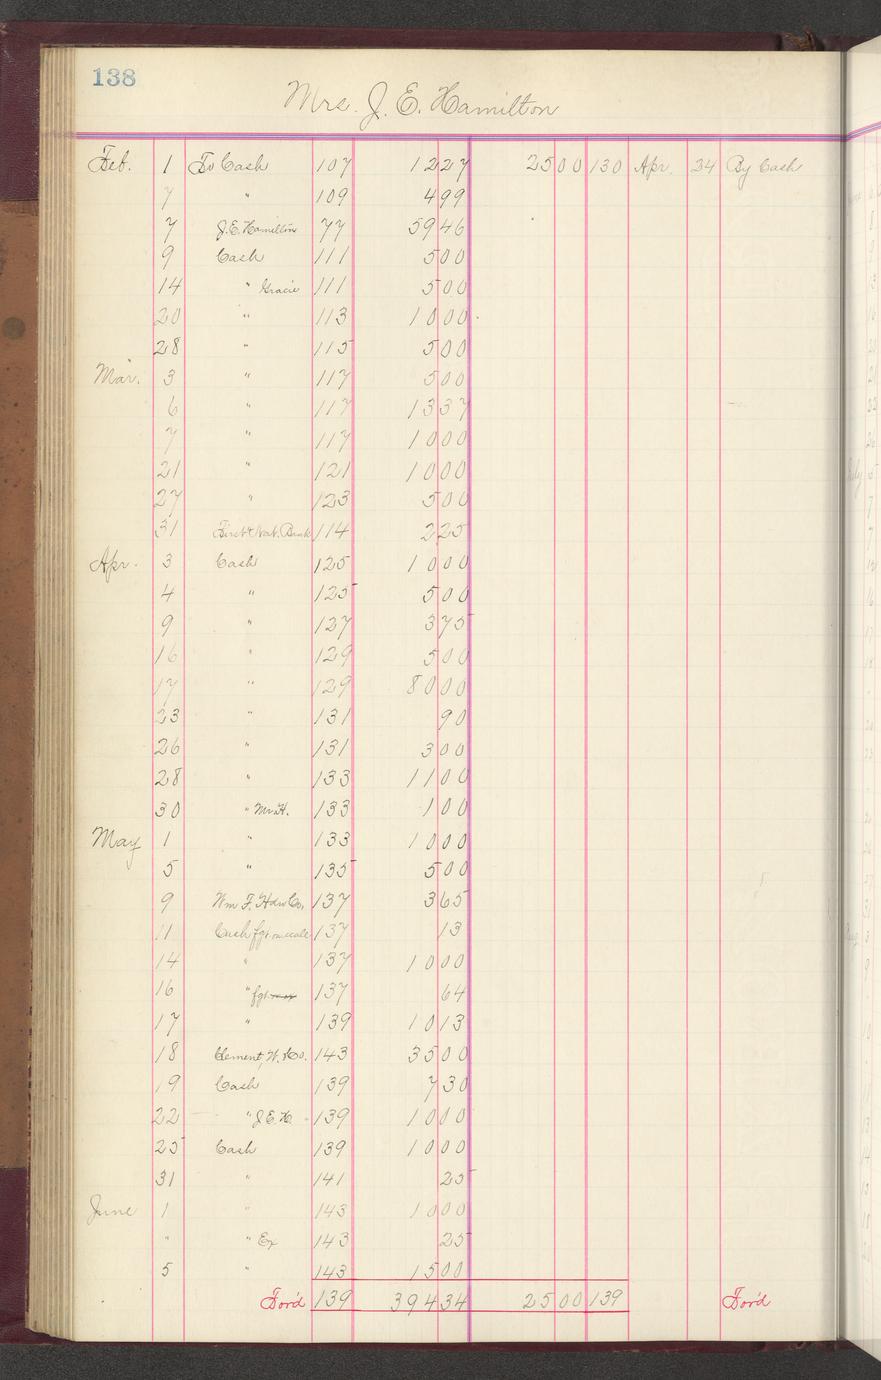 138
Mrs. J. E. Hamilton
Feb. 1 To Cash 107 12 27 25 00 130 Apr. 24 By Cash
7 " 109 4 99
7 J. E. Hamilton 77 59 46
9 Cash 111 5 00
14 " Gracie 111 5 00
20 " 113 10 00
28 " 115 5 00
Mar. 3 " 117 5 00
6 " 117 13 37
7 " 117 10 00
21 " 121 10 00
27 " 123 5 00
31 First Nat. Bank 114 2 25
Apr. 3 Cash 125 10 00
4 " 125 5 00
9 " 127 3 75
16 " 129 5 00
17 " 129 80 00
23 " 131 90
26 " 131 3 00
28 " 133 11 00
30 " Mr. H. 133 1 00
May 1 " 133 10 00
5 " 135 5 00
9 Wm F. Hdw Co. 137 3 65
11 Cash fgt. 137 13
14 " 137 10 00
16 " fgt. 137 64
17 " 139 10 13
18 Clement, W. & Co. 143 35 00
19 Cash 139 7 30
22 " J. E. H. 139 10 00
25 Cash 139 10 00
31 " 141 25
June 1 " 143 10 00
" " Ex 143 25
5 " 143 15 00
Ford 139 394 34 25 00 139 Ford